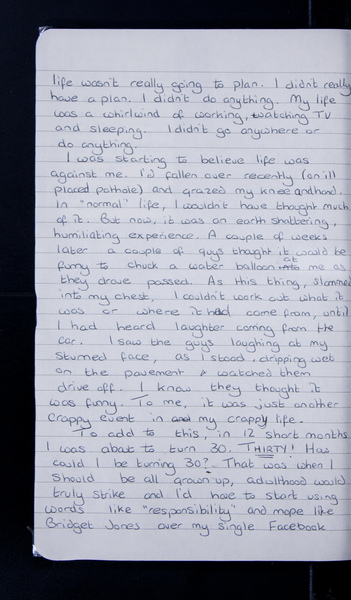 life wasn't really going to plan. I didn't really
have a plan. I didn't do anything. My life
was a whirlwind of working, watching TV
and sleeping. I didn't go anywhere or
do anything.
I was starting to believe life was
against me. I'd fallen over recently (an ill
placed pothole) and grazed my knee and hand.
In "normal" life, I wouldn't have thought much
of it. But now, it was an earth shattering,
humiliating experience. A couple of weeks
later a couple of guys thought it would be
funny to chuck a water balloon at me as
they drove passed. As this thing, slammed
into my chest, I couldn't work out what it
was or where it had come from, until
I had heard laughter coming from the
car. I saw the guys laughing at my
stunned face, as I stood, dripping wet
on the pavement & watched them
drive off. I know they thought it
was funny. To me, it was just another
crappy event in my crappy life.
To add to this, in 12 short months
I was about to turn 30. THIRTY! How
could I be turning 30? That was when I
should be all grown up, adulthood would
truly strike and I'd have to start using
words like "responsibility" and mope like
Bridget Jones over my single Facebook